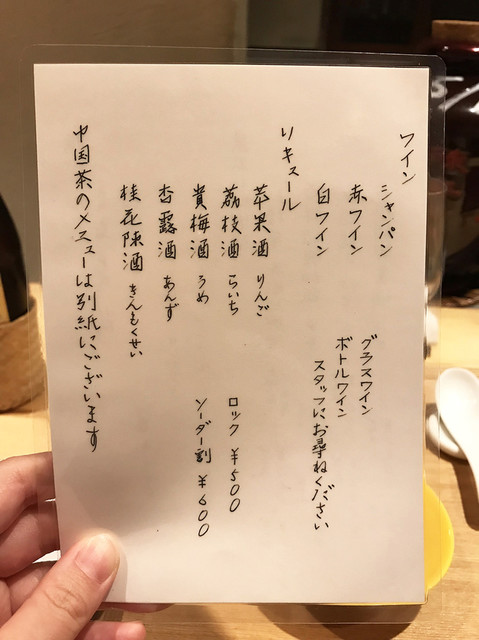 ワイン
シャンパン
赤ワイン
白ワイン
グラスワイン
ボトルワイン
スタッフにお尋ねください
リキュール
苹果酒 りんご
荔枝酒 らいち
貴梅酒 うめ
杏露酒 あんず
桂花陳酒 きんもくせい
ロック ¥500
ソーダー割 ¥600
中国茶のメニューは別紙にございます